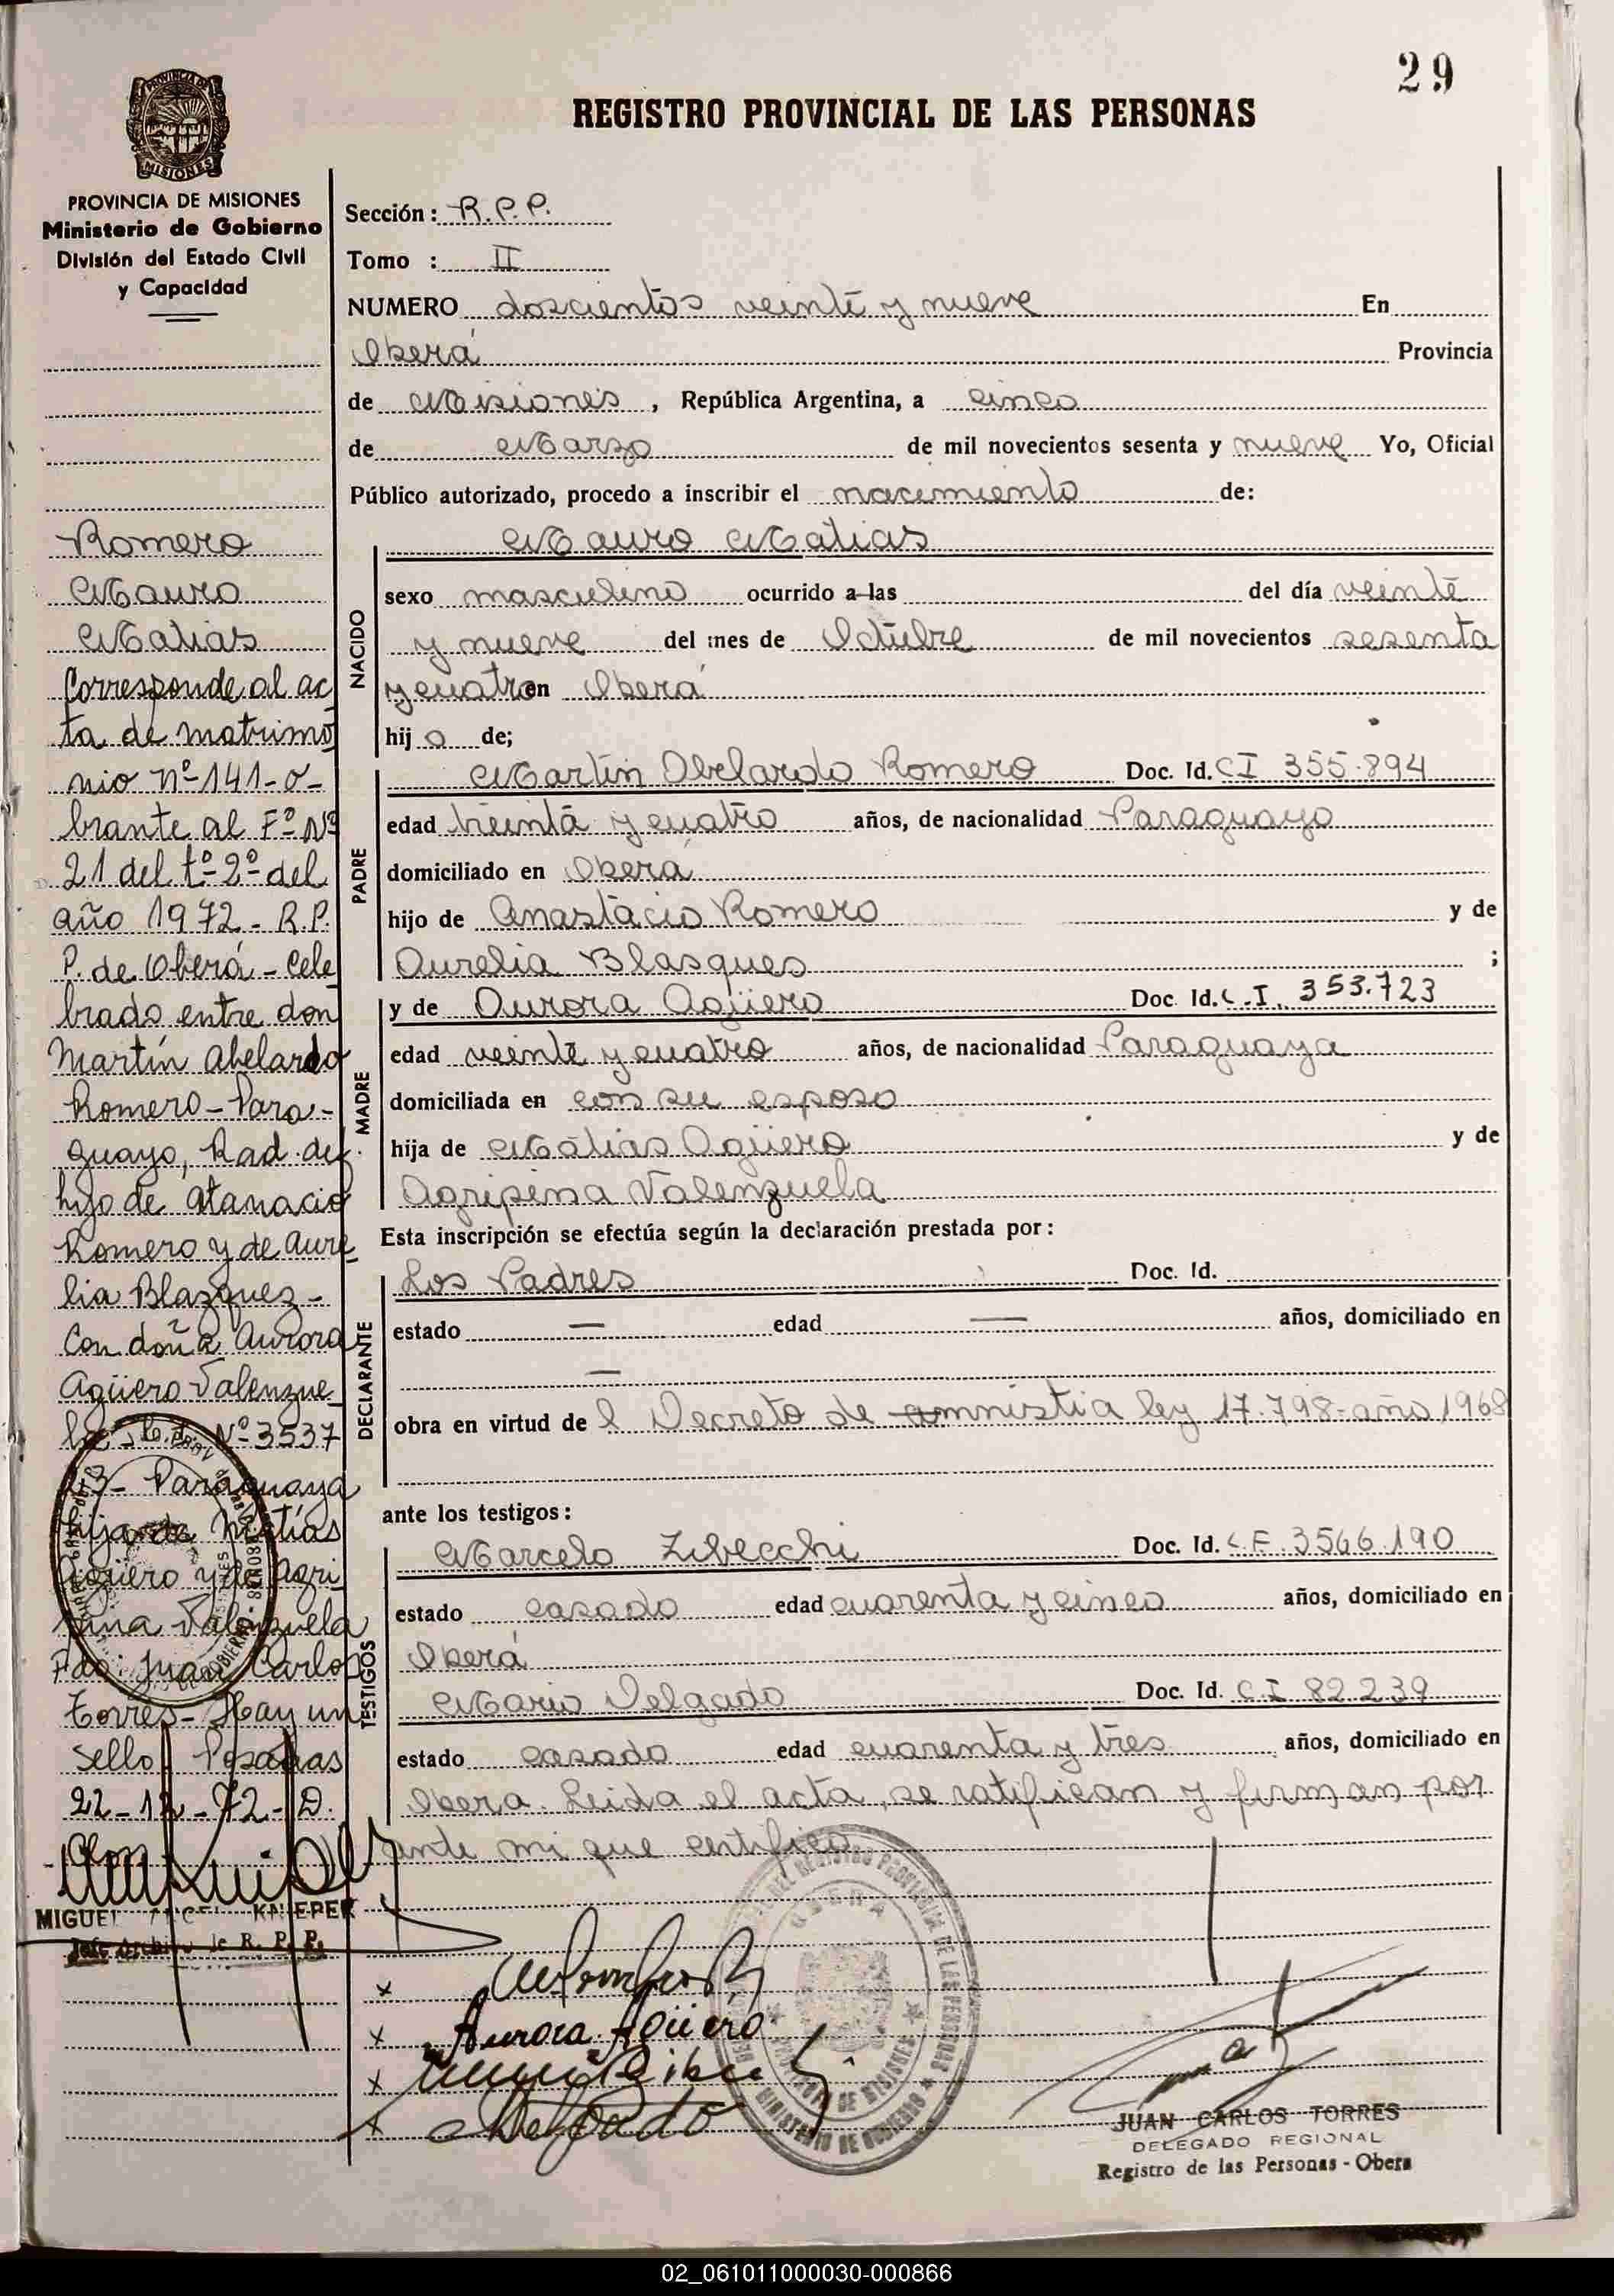 29
REGISTRO PROVINCIAL DE LAS PERSONAS
PROVINCIA DE MISIONES
Ministerio de Gobierno
División del Estado Civil
y Capacidad
Romero
Mauro
Matias
Corresponde al ac
ta de matrimo
nio nº 141-o-
brante al Fº Nº
21 del tº 2º del
año 1972 - R.P.
P. de Oberá - Cele
brado entre don
Martín Abelardo
Romero - Para-
guayo, Rad. def.
hijo de Atanacio
Romero y de Aure
lia Blazquez -
Con doña Aurora
Agüero Valenzue
la Nº 3537
23- Paraguaya
hija de Matías
Agüero y de Agri
pina Valenzuela
Fdo: Juan Carlos
Torres - Hay un
sello Posadas
22-12-72-D.
MIGUEL ANGEL KNIEPER
Jefe Archivo de R. P. P.
Sección: R.P.P.
Tomo : II
NUMERO doscientos veinte y nueve En
Oberá Provincia
de Misiones, República Argentina, a cinco
de Marzo de mil novecientos sesenta y nueve Yo, Oficial
Público autorizado, procedo a inscribir el nacimiento de:
NACIDO
Mauro Matias
sexo masculino ocurrido a las del día veinte
y nueve del mes de Octubre de mil novecientos sesenta
y cuatro en Oberá
hijo de;
PADRE
Martín Abelardo Romero Doc. Id. CI 355.894
edad treinta y cuatro años, de nacionalidad Paraguayo
domiciliado en Oberá
hijo de Anastacio Romero y de
Aurelia Blasques ;
MADRE
y de Aurora Agüero Doc. Id. C.I. 353.723
edad veinte y cuatro años, de nacionalidad Paraguaya
domiciliada en con su esposo
hija de Matias Agüero y de
Agripina Valenzuela
Esta inscripción se efectúa según la declaración prestada por:
DECLARANTE
Los Padres Doc. Id.
estado — edad — años, domiciliado en
—
obra en virtud del Decreto de amnistia ley 17.798-año 1968
ante los testigos:
TESTIGOS
Marcelo Zibecchi Doc. Id. L.E. 3566.190
estado casado edad cuarenta y cinco años, domiciliado en
Oberá
Mario Delgado Doc. Id. C.I 82.239
estado casado edad cuarenta y tres años, domiciliado en
Oberá. Leida el acta, se ratifican y firman por
ante mi que certifico.
x
x Aurora Agüero
x
x Delgado
OBERA
PROVINCIA DE MISIONES
MINISTERIO DE GOBIERNO
JUAN CARLOS TORRES
DELEGADO REGIONAL
Registro de las Personas - Obera
02_061011000030-000866